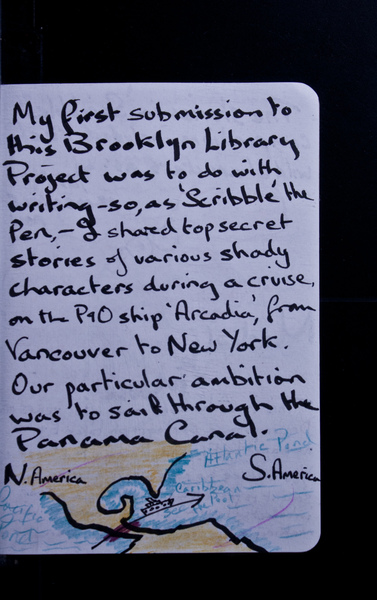 My first submission to
this Brooklyn Library
Project was to do with
writing-so, as 'Scribble' the
Pen,-I shared top secret
stories of various shady
characters during a cruise,
on the P&O ship 'Arcadia', from
Vancouver to New York.
Our particular ambition
was to sail through the
Panama Canal.
Atlantic Pond
N. America
S. America
Caribbean
Pacific